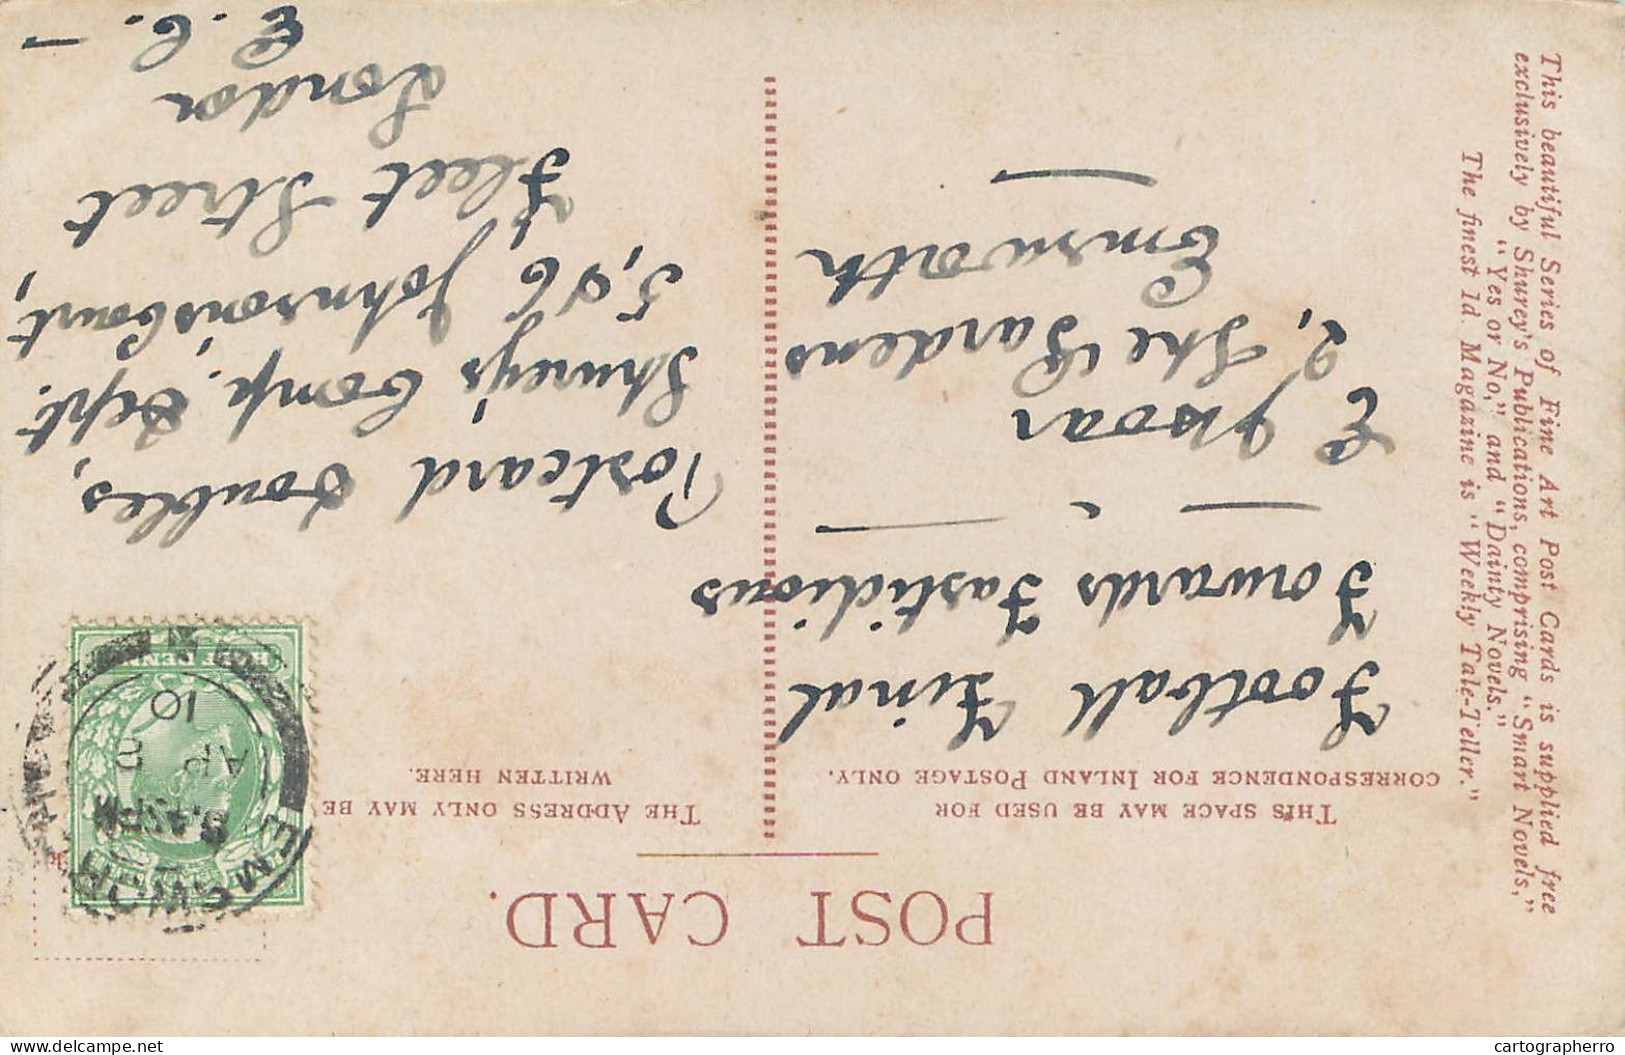 POST CARD.
THIS SPACE MAY BE USED FOR
CORRESPONDENCE FOR INLAND POSTAGE ONLY.
THE ADDRESS ONLY MAY BE
WRITTEN HERE.
Football Final
Forwards Fastidious
2, The Gardens
Emsworth
Postcard Doubles,
Shurey's Comp. Dept.
5, & 6 Johnson's Court,
Fleet Street
London
E. C.
EMSWOR
AP 2
10
HALF PENNY
This beautiful Series of Fine Art Post Cards is supplied free
exclusively by Shurey's Publications, comprising "Smart Novels,"
"Yes or No," and "Dainty Novels."
The finest 1d. Magazine is "Weekly Tale-Teller."
www.delcampe.net
cartographerro